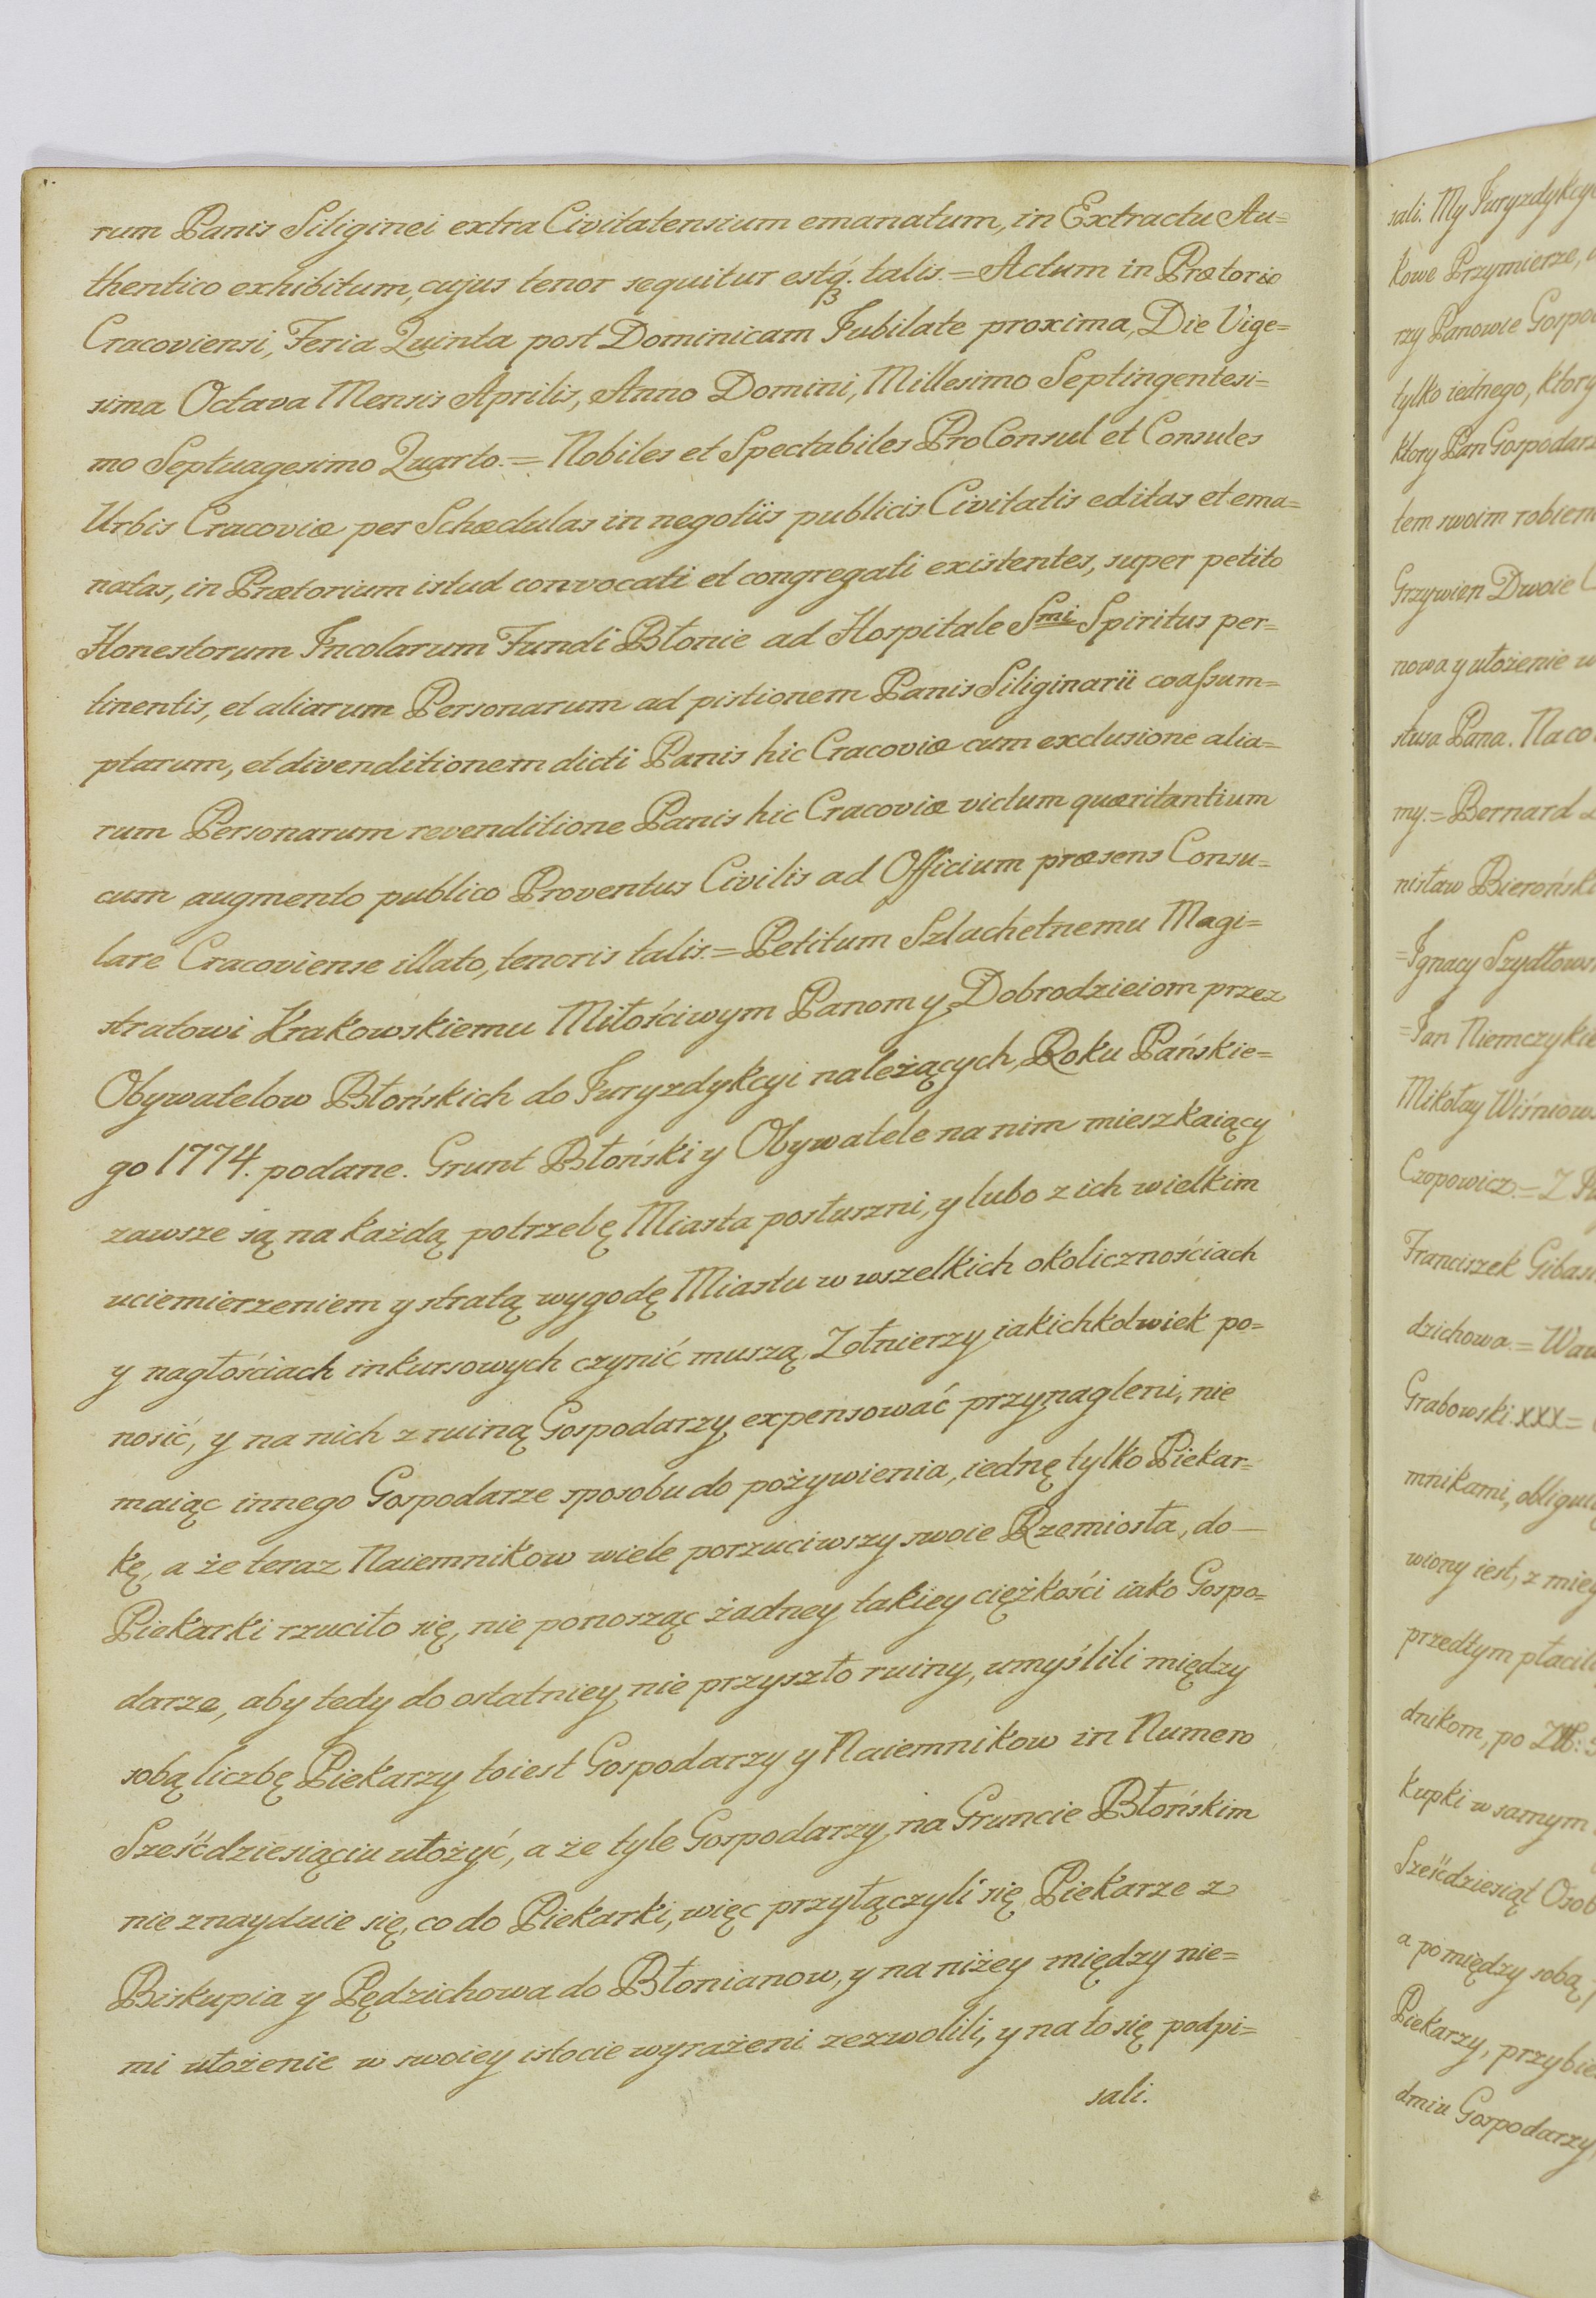 rum Panis Siliginei extra Civitatensium emanatum, in Extractu Au=
thentico exhibitum, cujus tenor sequitur estq́ʒ. talis.= Actum in Prætorio
Cracoviensi, Feria Quinta post Dominicam Jubilate proxima, Die Vige=
sima Octava Mensis Aprilis, Anno Domini, Millesimo Septingentesi=
mo Septuagesimo Quarto.= Nobiles et Spectabiles ProConsul et Consules
Urbis Cracoviæ per Schædulas in negotiis publicis Civitatis editas et ema=
natas, in Prætorium istud convocati et congregati existentes, super petito
Honestorum Incolarum Fundi Błonie ad Hospitale Smi Spiritus per=
tinentis, et aliarum Personarum ad pistionem Panis Siliginarii coaſsum=
ptarum, et divenditionem dicti Panis hic Cracoviæ cum exclusione alia=
rum Personarum revenditione Panis hic Cracoviæ victum quæritantium
cum augmento publico Proventus Civilis ad Officium præsens Consu=
lare Cracoviense illato, tenoris talis.= Petitum Szlachetnemu Magi=
stratowi Krakowskiemu Miłościwym Panom y Dobrodzieiom przez
Obywatelow Błońskich do Juryzdykcyi należących, Roku Pańskie=
go 1774. podane. Grunt Błoński y Obywatele na nim mieszkaiący
zawsze są na każdą potrzebę Miasta posłuszni, y lubo z ich wielkim
uciemierzeniem y stratą wygodę Miastu w wszelkich okolicznościach
y nagłościach inkursowych czynić muszą, Zołnierzy iakichkolwiek po=
nosić, y na nich z ruiną Gospodarzy expensować przynagleni, nie
maiąc innego Gospodarze sposobu do pożywienia, iednę tylko Piekar=
kę, a że teraz Naiemnikow wiele porzuciwszy swoie Rzemiosła, do
Piekarki rzuciło się, nie ponosząc żadney takiey ciężkości iako Gospo=
darze, aby tedy do ostatniey nie przyszło ruiny, umyślili między
sobą liczbę Piekarzy toiest Gospodarzy y Naiemnikow in Numero
Sześćdziesiąciu ułożyć, a że tyle Gospodarzy na Gruncie Błońskim
nie znayduie się, co do Piekarki, więc przyłączyli się Piekarze z
Biskupia y Pędzichowa do Błonianow, y na niżey między nie=
mi ułożenie w swoiey istocie wyrażeni zezwolili, y na to się podpi=
sali.
sali. My Juryzdykcy
kowe Przymierze,
rzy Panowie Gospo
tylko iednego, ktory
ktory Pan Gospodarz
tem swoim robien
Grzywien Dwoie
nowa y ułożenie w
stusa Pana. Na co
my.= Bernard
nisław Bieroński
=Ignacy Szydłows
=Jan Niemczykie
Mikołay Wiśniows
Czopowicz.= Z
Franciszek Gibas
dzichowa.= Waw
Grabowski. xxx=
mnikami, obligui
wiony iest, z mie
przedtym płacili
dnikom, po
kupki w samym
Sześćdziesiąt Osob
a pomiędzy sobą
Piekarzy, przybie
dmiu Gospodarzy,